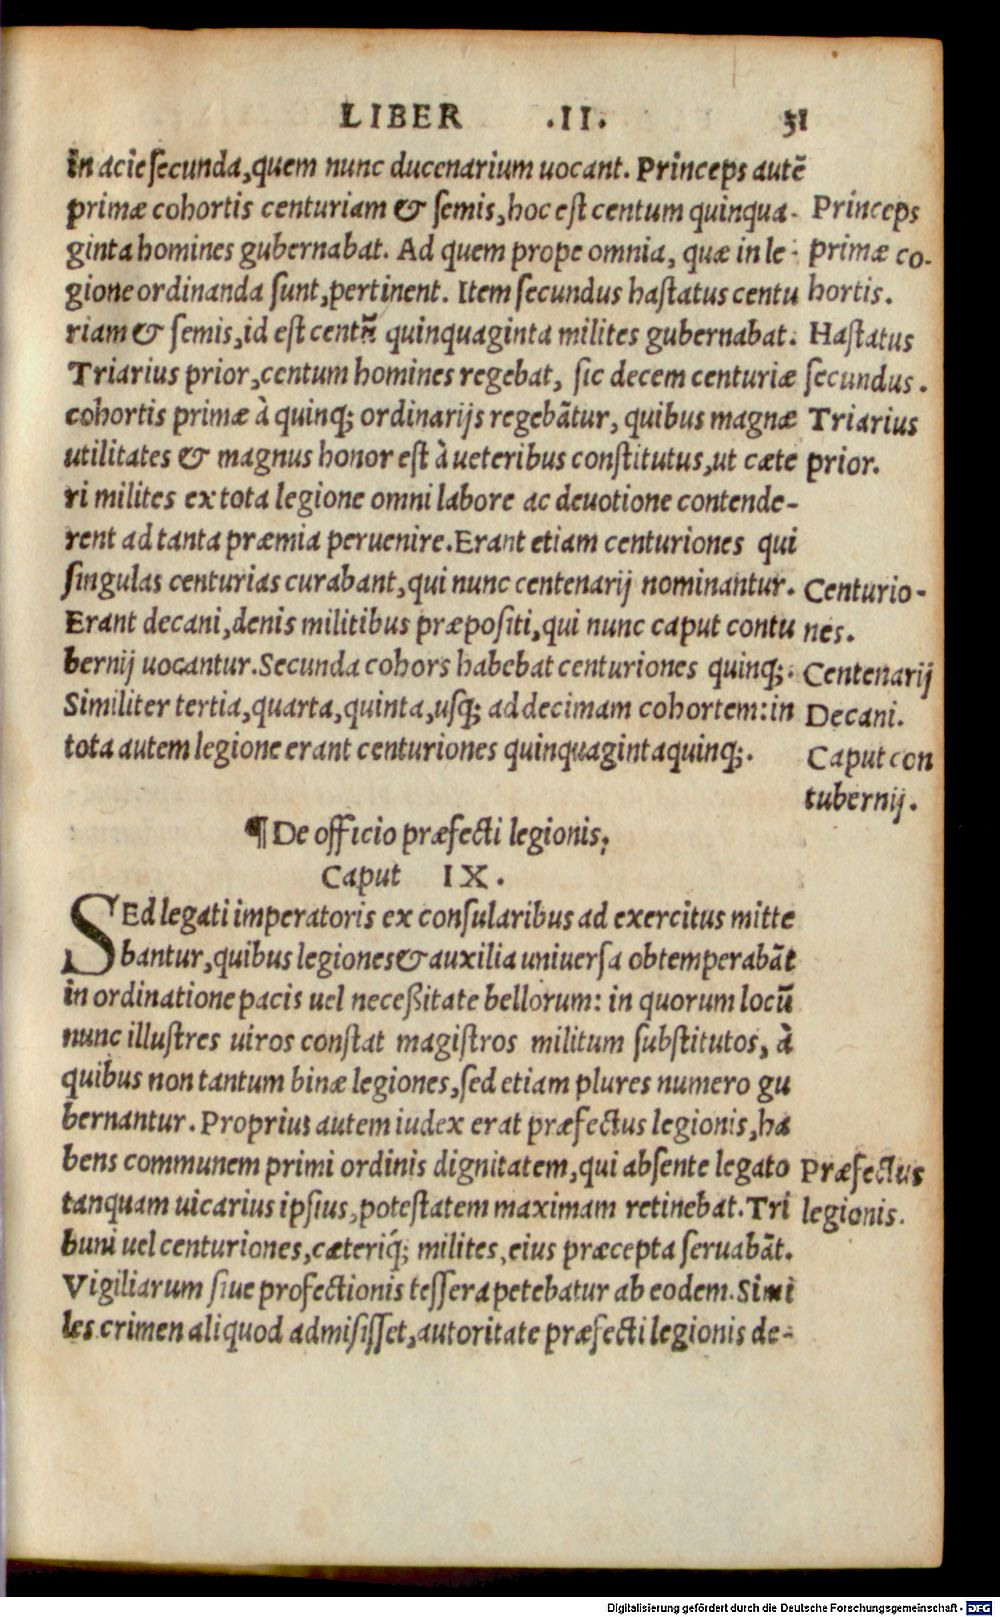 LIBER .II. 31
in acie secunda,quem nunc ducenarium uocant. Princeps autē
primæ cohortis centuriam & semis,hoc est centum quinqua-
ginta homines gubernabat. Ad quem prope omnia, quæ in le-
gione ordinanda sunt,pertinent. Item secundus hastatus centu
riam & semis,id est centū quinquaginta milites gubernabat.
Triarius prior,centum homines regebat, sic decem centuriæ
cohortis primæ à quinq; ordinarijs regebātur, quibus magnæ
utilitates & magnus honor est à ueteribus constitutus,ut cæte
ri milites ex tota legione omni labore ac deuotione contende-
rent ad tanta præmia peruenire.Erant etiam centuriones qui
singulas centurias curabant,qui nunc centenarij nominantur.
Erant decani,denis militibus præpositi,qui nunc caput contu
bernij uocantur.Secunda cohors habebat centuriones quinq;.
Similiter tertia,quarta,quinta,usq; ad decimam cohortem:in
tota autem legione erant centuriones quinquagintaquinq;.
Princeps
primæ co-
hortis.
Hastatus
secundus.
Triarius
prior.
Centurio-
nes.
Centenarij
Decani.
Caput con
tubernij.
¶De officio præfecti legionis.
Caput IX.
SEd legati imperatoris ex consularibus ad exercitus mitte
bantur,quibus legiones & auxilia uniuersa obtemperabāt
in ordinatione pacis uel neceßitate bellorum: in quorum locū
nunc illustres uiros constat magistros militum substitutos, à
quibus non tantum binæ legiones,sed etiam plures numero gu
bernantur. Proprius autem iudex erat præfectus legionis,ha
bens communem primi ordinis dignitatem,qui absente legato
tanquam uicarius ipsius,potestatem maximam retinebat.Tri
buni uel centuriones,cæteriq́; milites,eius præcepta seruabāt.
Vigiliarum siue profectionis tessera petebatur ab eodem.Simi
les crimen aliquod admisisset,autoritate præfecti legionis de-
Præfectus
legionis.
Digitalisierung gefördert durch die Deutsche Forschungsgemeinschaft - DFG